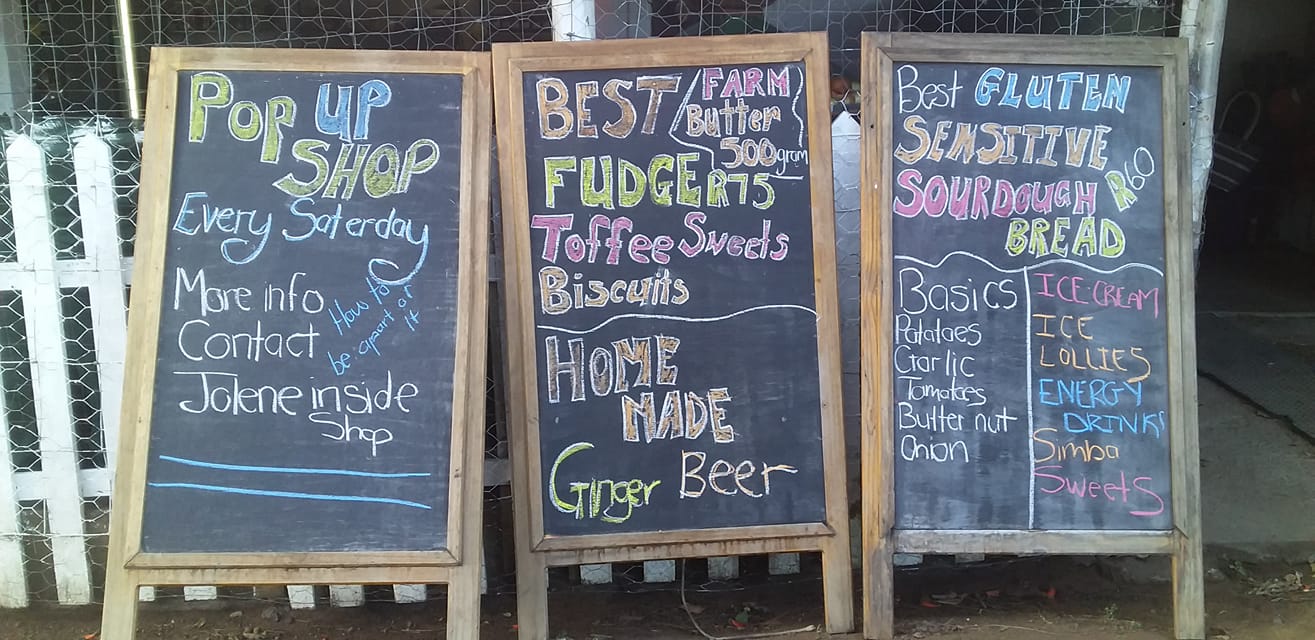 POP UP
SHOP
Every Saterday
More info
Contact
How to
be apart of
it
Jolene inside
Shop
BEST
FARM
Butter
500gram
R75
FUDGE
Toffee Sweets
Biscuits
HOME
MADE
Ginger Beer
Best GLUTEN
SENSITIVE
SOURDOUGH R60
BREAD
Basics
Potatoes
Garlic
Tomatoes
Butter nut
Onion
ICE-CREAM
ICE
LOLLIES
ENERGY
DRINKS
Simba
Sweets